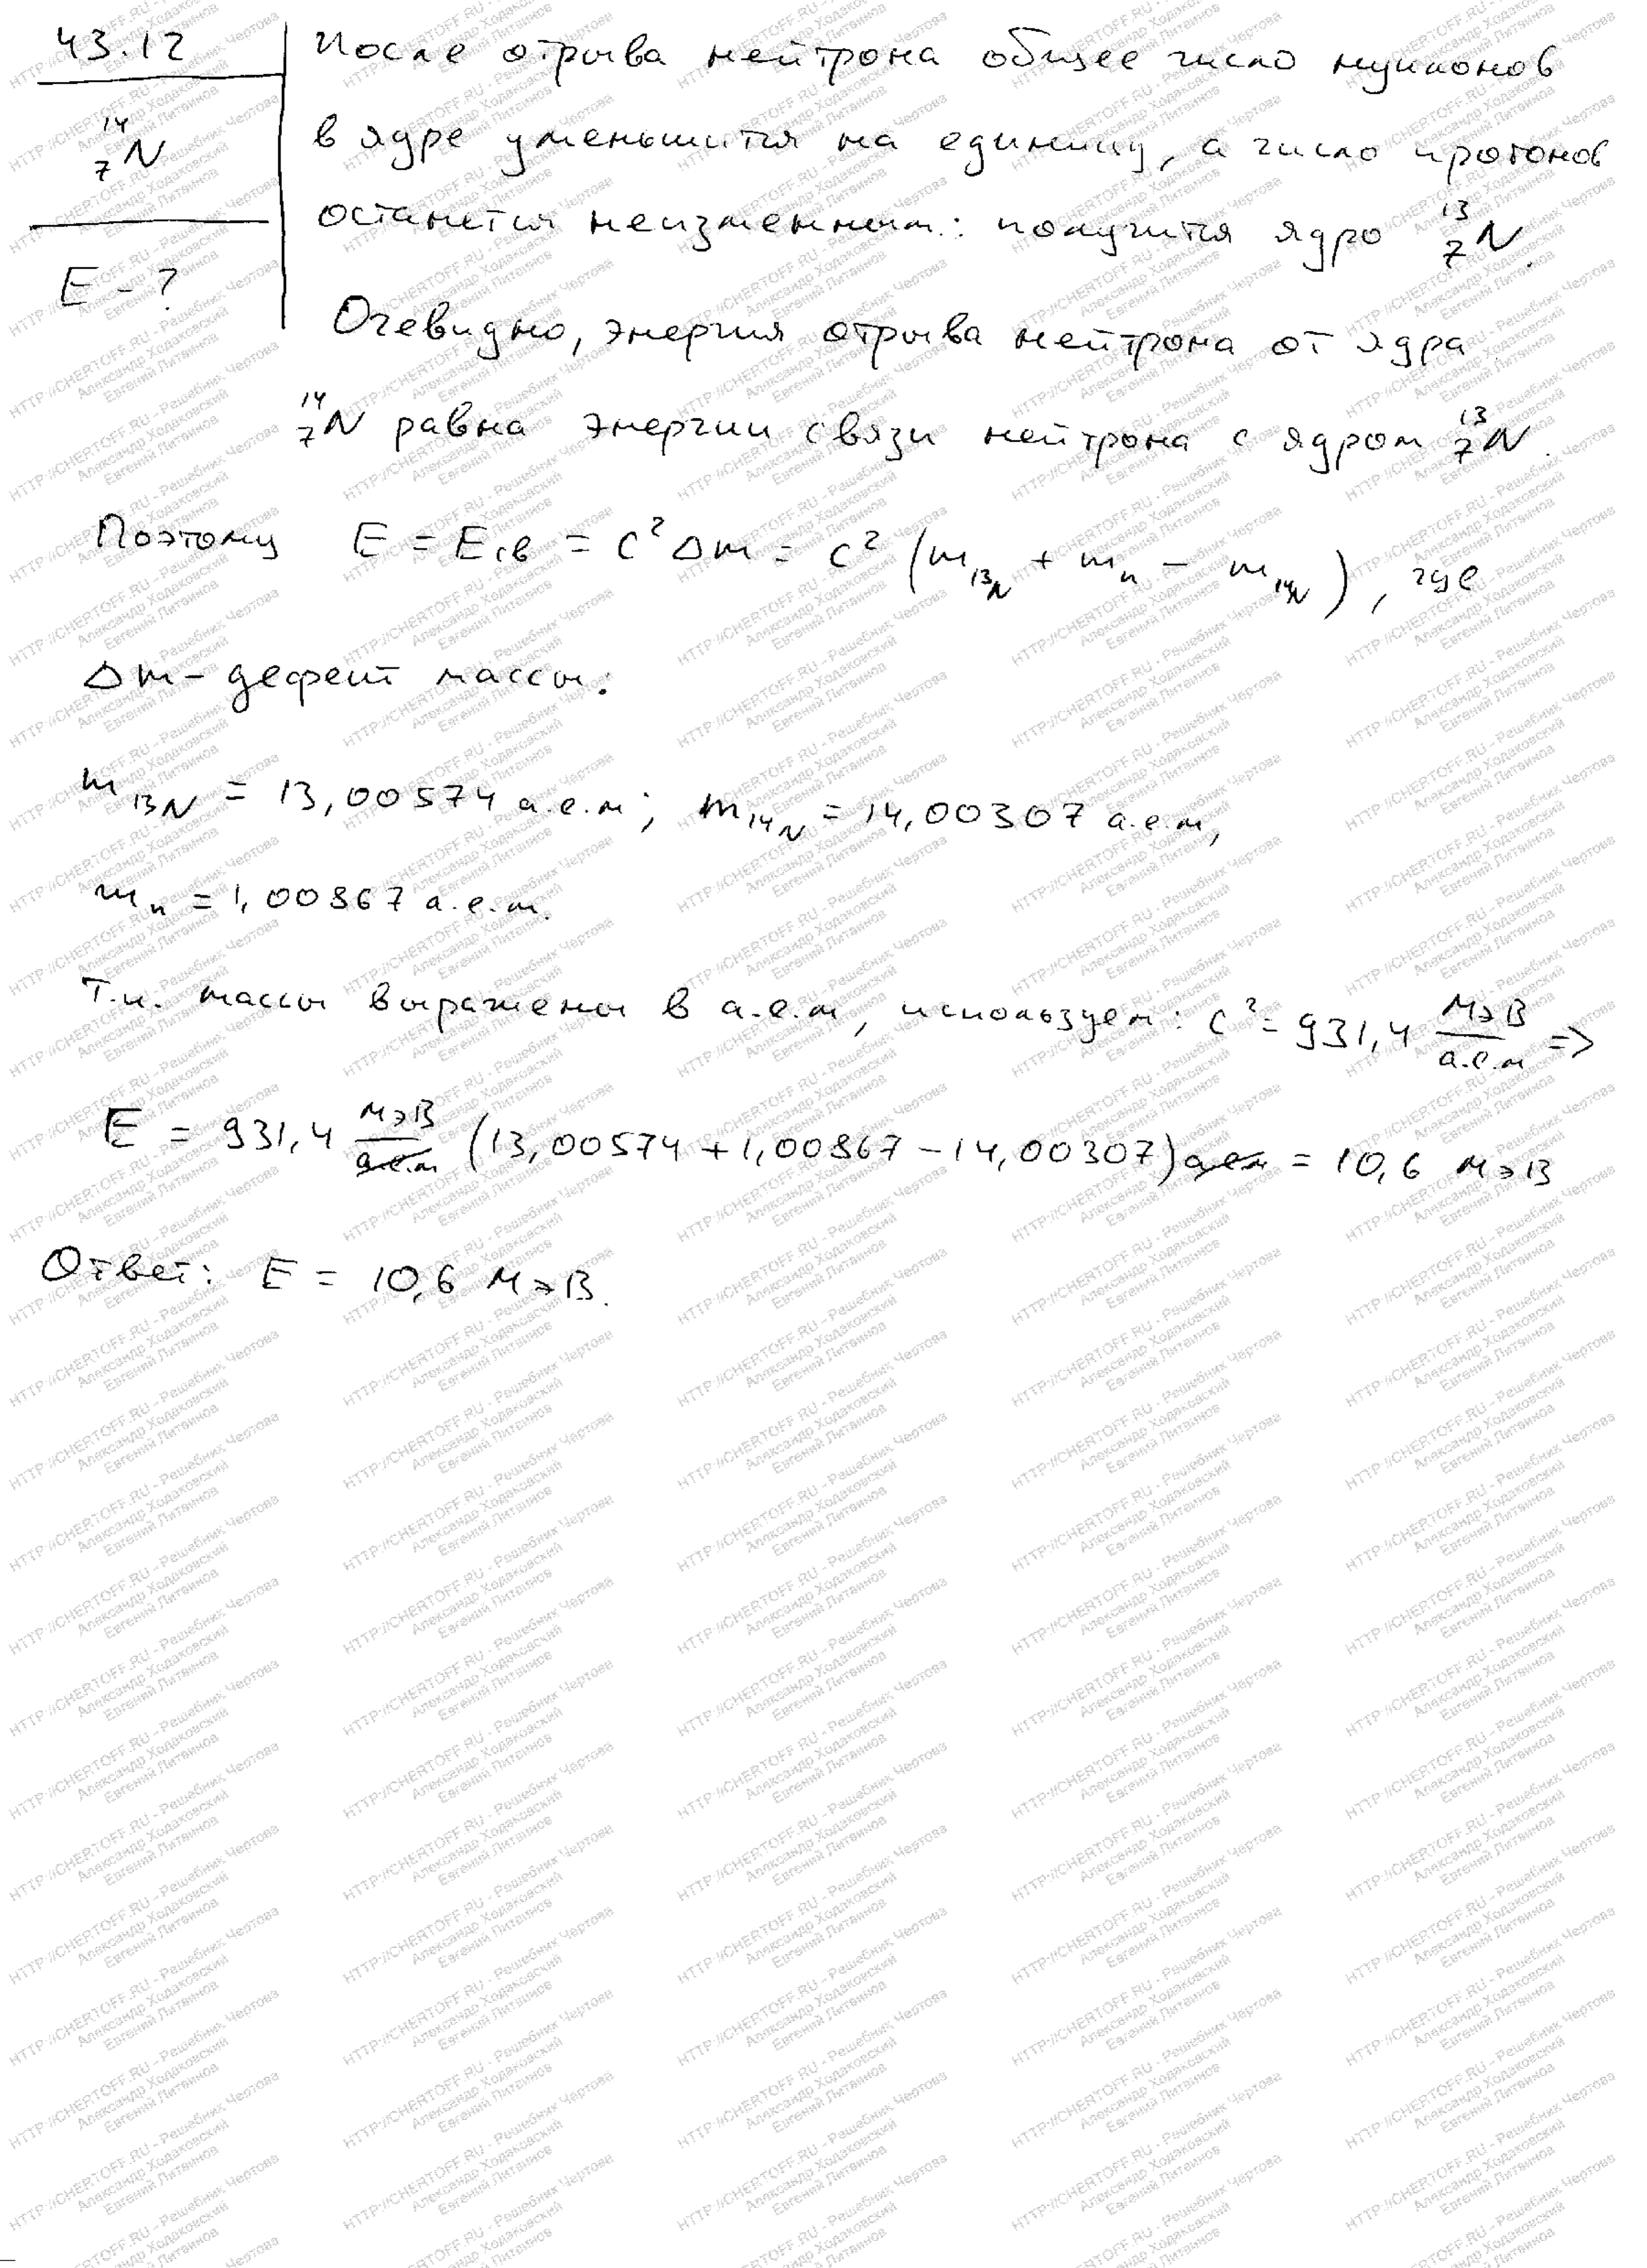 43.12
¹⁴₇N
E - ?
После отрыва нейтрона общее число нуклонов
в ядре уменьшится на единицу, а число протонов
останется неизменным: получится ядро ¹³₇N.
Очевидно, энергия отрыва нейтрона от ядра
¹⁴₇N равна энергии связи нейтрона с ядром ¹³₇N.
Поэтому E = Eсв = c² Δm = c² (m₁₃N + mₙ - m₁₄N), где
Δm - дефект массы:
m₁₃N = 13,00574 а.е.м; m₁₄N = 14,00307 а.е.м,
mₙ = 1,00867 а.е.м.
Т.к. массы выражены в а.е.м, используем: c² = 931,4 МэВ/а.е.м =>
E = 931,4 МэВ/а.е.м (13,00574 + 1,00867 - 14,00307) а.е.м = 10,6 МэВ
Ответ: E = 10,6 МэВ.
HTTP://CHERTOFF.RU - Решебник Чертова
Александр Ходаковский
Евгений Литвинов